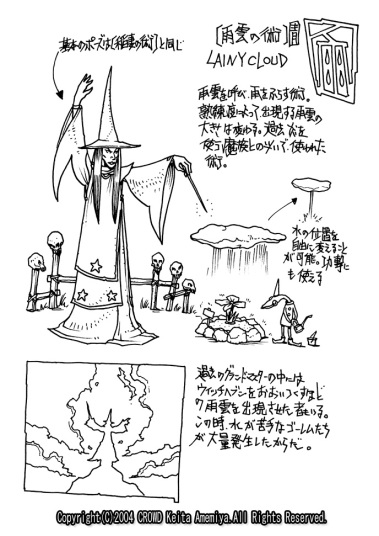 [雨雲の術]
LAINYCLOUD
基本のポーズは[稲雲の術]と同じ
雨雲を呼び、雨をふらす術。
熟練度によって、出現する雨雲の
大きさは変わる。過去、火を
使う魔族との戦いで、使われた
術。
水の位置を
自由に変えること
が可能。攻撃に
も使える
過去のグランドマスターの中には
ウィッチヘブンをおおいつくすほど
の雨雲を出現させた者もいる。
この時、水が苦手なゴーレムたち
が大量発生したからだ。
Copyright(C)2004 CROWD Keita Amemiya.All Rights Reserved.